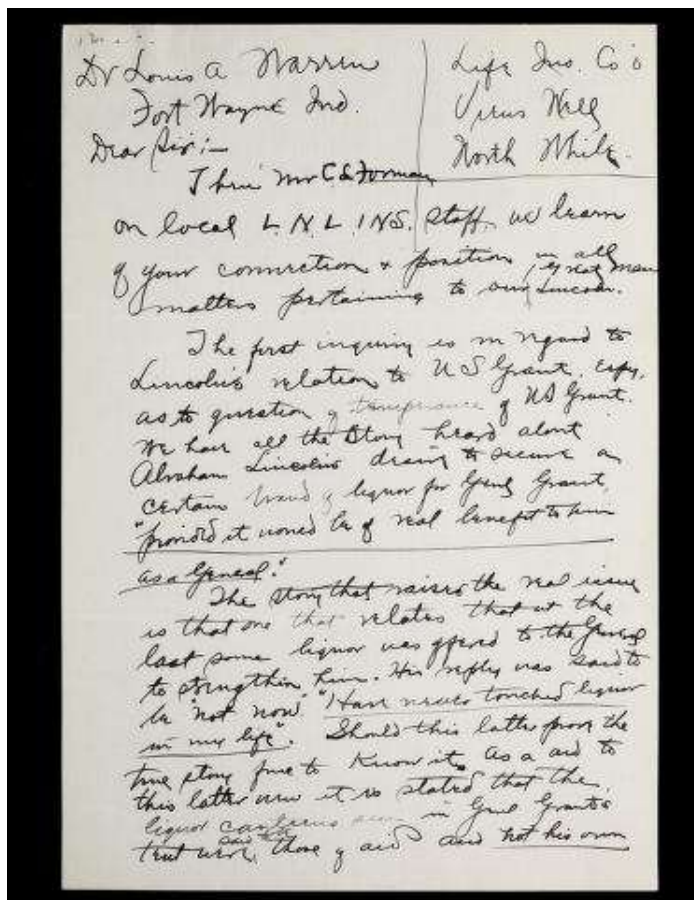 Dr Louis A Warren
Fort Wayne Ind.
Dear Sir:-
Life Ins. Co's
North
Thru Mr C S Forman
on local L.N.L INS. staff. we learn
of your connection & position in all
matters pertaining to our (great man Lincoln.
The first inquiry is in regard to
Lincolns relation to U S Grant, espy.
as to question of temperance of US Grant.
We have all the story heard about
Abraham Lincolns desire to secure a
certain brand of liquor for Genl Grant,
"provided it would be of real benefit to him
as a General."
The story that raises the real issue
is that one that relates that at the
last some liquor was offered to the General
to strengthen him. His reply was said to
be "not now" "Have never touched liquor
in my life". Should this latter prove the
true story fine to know it. As a aid to
this latter view it is stated that the
liquor seen in Genl Grants
tent were, said to be those of aid and not his own